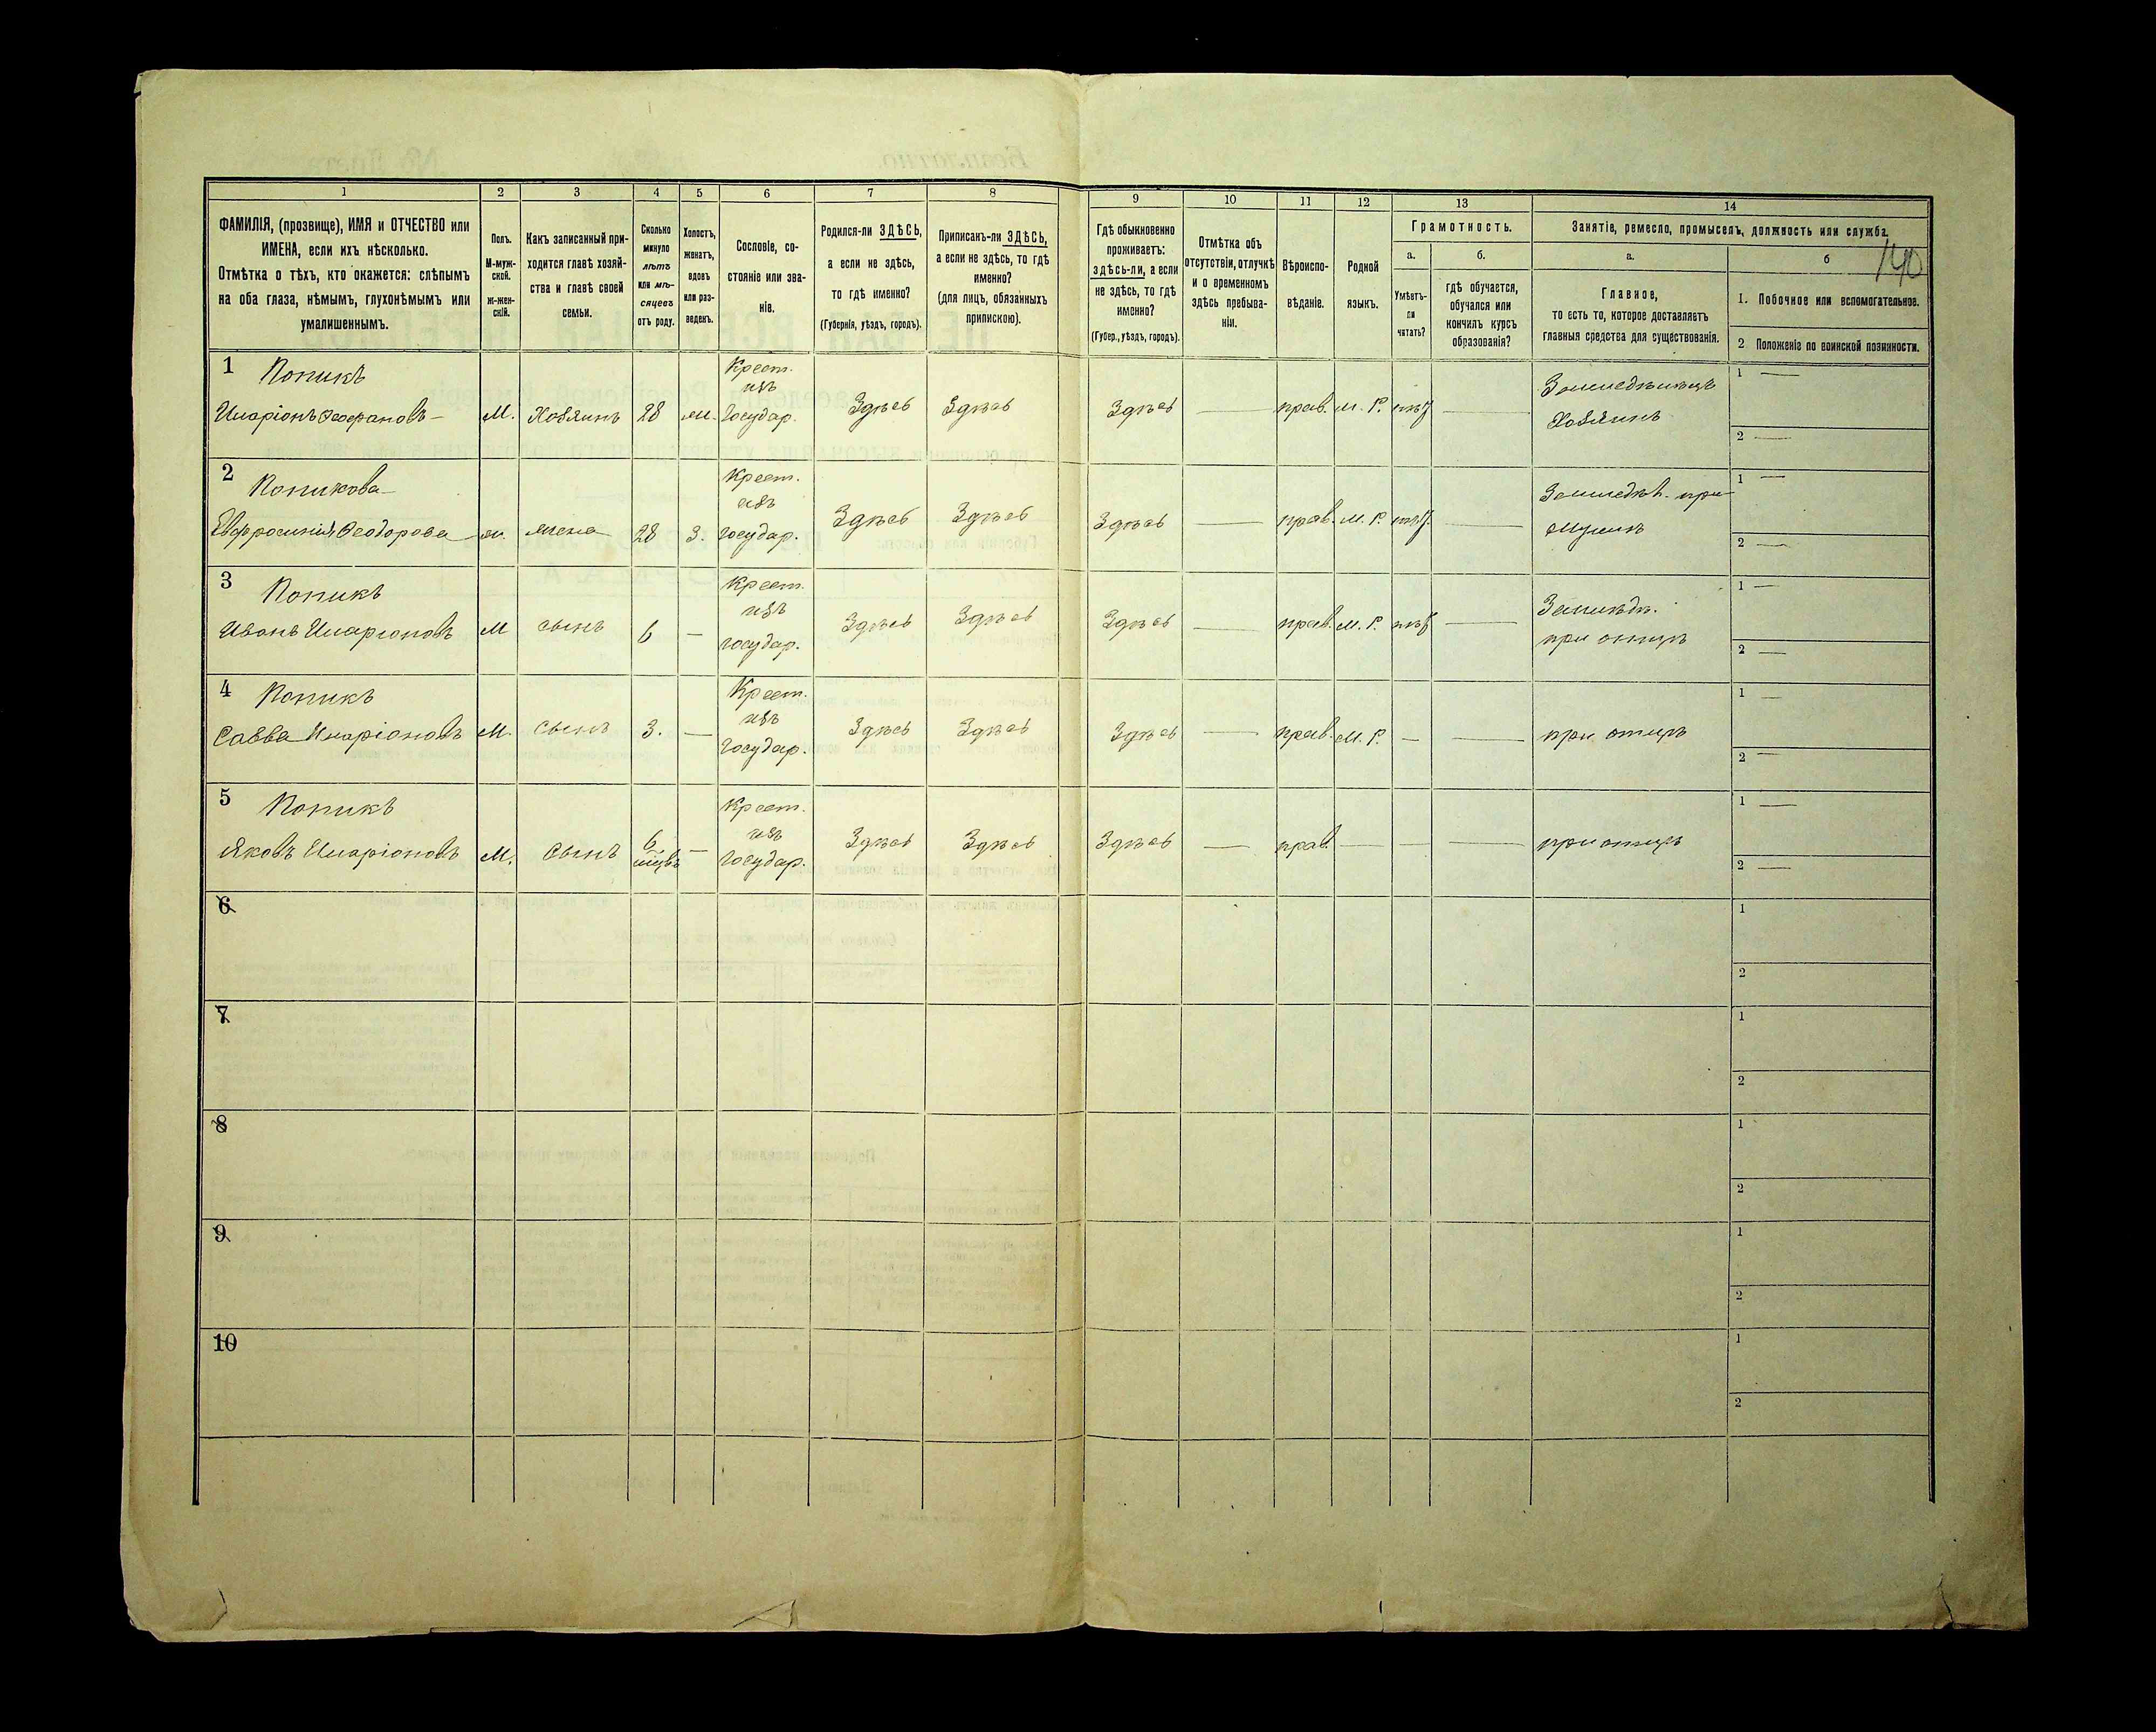 140
1 2 3 4 5 6 7 8 9 10 11 12 13 14
ФАМИЛІЯ, (прозвище), ИМЯ и ОТЧЕСТВО или
ИМЕНА, если ихъ нѣсколько.
Отмѣтка о тѣхъ, кто окажется: слѣпымъ
на оба глаза, нѣмымъ, глухонѣмымъ или
умалишеннымъ.
Полъ.
М-муж-
ской.
ж-жен-
скій.
Какъ записанный при-
ходится главѣ хозяй-
ства и главѣ своей
семьи.
Сколько
минуло
лѣтъ
или мѣ-
сяцевъ
отъ роду.
Холостъ,
женатъ,
вдовъ
или раз-
веденъ.
Сословіе, со-
стояніе или зва-
ніе.
Родился-ли ЗДѢСЬ,
а если не здѣсь,
то гдѣ именно?
(Губернія, уѣздъ, городъ).
Приписанъ-ли ЗДѢСЬ,
а если не здѣсь, то гдѣ
именно?
(для лицъ, обязанныхъ
припискою).
Гдѣ обыкновенно
проживаетъ:
здѣсь-ли, а если
не здѣсь, то гдѣ
именно?
(Губер., уѣздъ, городъ).
Отмѣтка объ
отсутствіи, отлучкѣ
и о временномъ
здѣсь пребыва-
ніи.
Вѣроиспо-
вѣданіе.
Родной
языкъ.
Грамотность.
а.
Умѣетъ-
ли
читать?
б.
гдѣ обучается,
обучался или
кончилъ курсъ
образованія?
Занятіе, ремесло, промыселъ, должность или служба.
а.
Главное,
то есть то, которое доставляетъ
главныя средства для существованія.
б
1. Побочное или вспомогательное.
2 Положеніе по воинской повинности.
1 Попикъ Крест. изъ Земледѣлецъ 1 —
Иларіонъ Феофановъ — М. Хозяинъ 28 ж. Государ. Здѣсь Здѣсь Здѣсь — прав. м. р. нѣт — Хозяинъ 2 —
2 Попикова Крест. изъ Земледѣл. при 1 —
Евфросинія Феодорова ж. жена 28 З. Государ. Здѣсь Здѣсь Здѣсь — прав. м. р. нѣт — мужѣ 2 —
3 Попикъ Крест. изъ Земледѣ. 1 —
Иванъ Иларіоновъ М сынъ 6 — Государ. Здѣсь Здѣсь Здѣсь — прав. м. р. нѣт — при отцѣ 2 —
4 Попикъ Крест. изъ 1 —
Савва Иларіоновъ М. сынъ 3. — Государ. Здѣсь Здѣсь Здѣсь — прав. м. р. — — при отцѣ 2 —
5 Попикъ Крест. изъ 1 —
Яковъ Иларіоновъ М. сынъ 6 — Государ. Здѣсь Здѣсь Здѣсь — прав. — — — при отцѣ 2 —
6 1
2
7 1
2
8 1
2
9 1
2
10 1
2